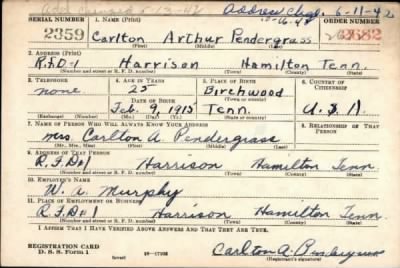 Address Chgd. 5-11-42
SERIAL NUMBER 1. NAME (Print) ORDER NUMBER
2359 Carlton Arthur Pendergrass
(First) (Middle) (Last)
2. ADDRESS (Print)
R.F.D-1 Harrison Hamilton Tenn.
(Number and street or R. F. D. number) (Town) (County) (State)
3. TELEPHONE 4. AGE IN YEARS 5. PLACE OF BIRTH 6. COUNTRY OF CITIZENSHIP
none 25 Birchwood
DATE OF BIRTH
Feb. 9, 1915 Tenn. U.S.A
(Exchange) (Number) (Mo.) (Day) (Yr.) (Town or county) (State or country)
7. NAME OF PERSON WHO WILL ALWAYS KNOW YOUR ADDRESS 8. RELATIONSHIP OF THAT PERSON
Mrs. Carlton A. Pendergrass
(Mr., Mrs., Miss) (First) (Middle) (Last)
9. ADDRESS OF THAT PERSON
R.F.D#1 Harrison Hamilton Tenn
(Number and street or R. F. D. number) (Town) (County) (State)
10. EMPLOYER'S NAME
W. A. Murphy
11. PLACE OF EMPLOYMENT OR BUSINESS
R.F.D#1 Harrison Hamilton Tenn.
(Number and street or R. F. D. number) (Town) (County) (State)
I AFFIRM THAT I HAVE VERIFIED ABOVE ANSWERS AND THAT THEY ARE TRUE.
REGISTRATION CARD
D. S. S. Form 1
(over)
Carlton A.
(Registrant's signature)